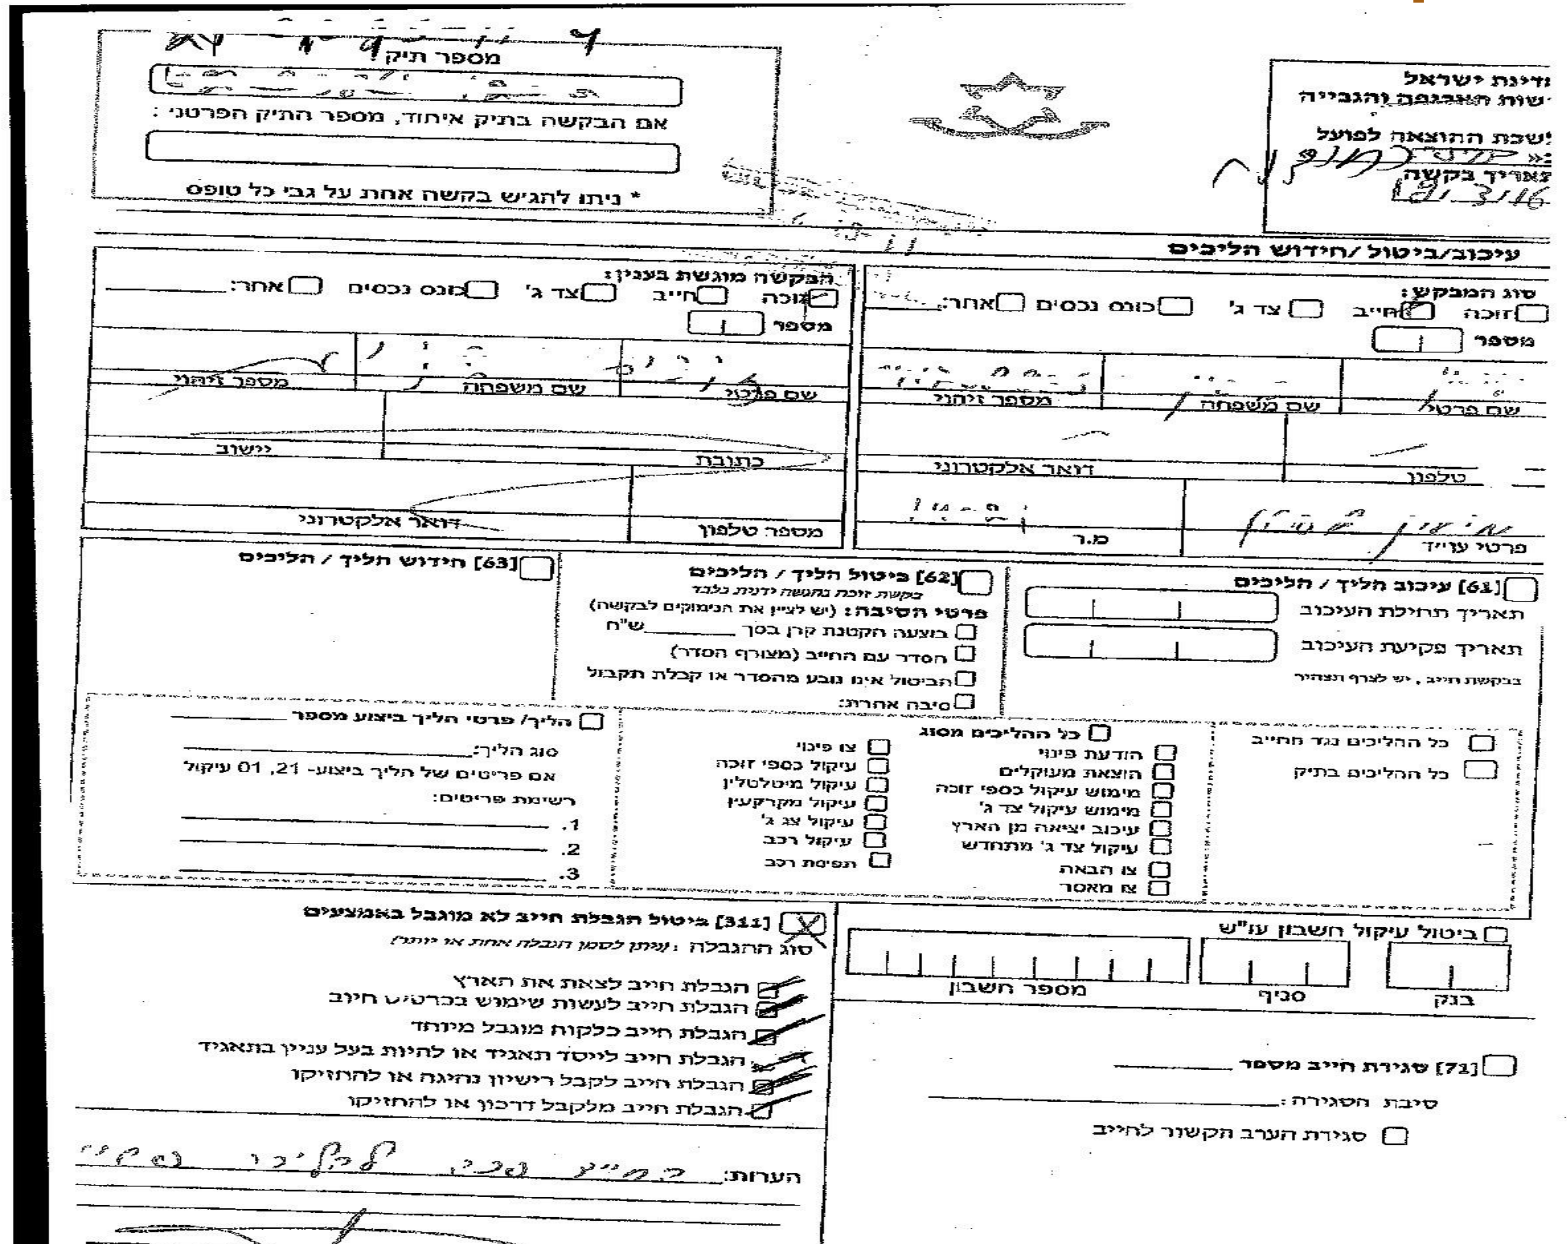 מדינת ישראל
רשות האכיפה והגבייה
לשכת ההוצאה לפועל
תאריך בקשה
מספר תיק
אם הבקשה בתיק איחוד, מספר התיק הפרטני :
* ניתן להגיש בקשה אחת על גבי כל טופס
עיכוב/ביטול /חידוש הליכים
סוג המבקש:
זוכה חייב צד ג' כונס נכסים אחר:
מספר
שם פרטי שם משפחה מספר זיהוי
טלפון דואר אלקטרוני
פרטי עו"ד מ.ר
הבקשה מוגשת בענין:
זוכה חייב צד ג' כונס נכסים אחר:
מספר
שם פרטי שם משפחה מספר זיהוי
כתובת יישוב
מספר טלפון דואר אלקטרוני
[61] עיכוב הליך / הליכים
תאריך תחילת העיכוב
תאריך פקיעת העיכוב
בבקשת חייב, יש לצרף תצהיר
[62] ביטול הליך / הליכים
בקשת זוכה בהגשה ידנית בלבד
פרטי הסיבה: (יש לציין את הנימוקים לבקשה)
בוצעה הקטנת קרן בסך ש"ח
הסדר עם החייב (מצורף הסדר)
הביטול אינו נובע מהסדר או קבלת תקבול
סיבה אחרת:
[63] חידוש הליך / הליכים
כל ההליכים נגד החייב
כל ההליכים בתיק
כל ההליכים מסוג
הודעת פינוי
הוצאת מעוקלים
מימוש עיקול כספי זוכה
מימוש עיקול צד ג'
עיכוב יציאה מן הארץ
עיקול צד ג' מתחדש
צו הבאה
צו מאסר
צו פינוי
עיקול כספי זוכה
עיקול מיטלטלין
עיקול מקרקעין
עיקול צג ג'
עיקול רכב
תפיסת רכב
הליך/ פרטי הליך ביצוע מספר
סוג הליך:
אם פריטים של הליך ביצוע- 21, 01 עיקול
רשימת פריטים:
1.
2.
3.
ביטול עיקול חשבון עו"ש
בנק סניף מספר חשבון
[71] סגירת חייב מספר
סיבת הסגירה:
סגירת הערב הקשור לחייב
[311] ביטול הגבלת חייב לא מוגבל באמצעים
סוג ההגבלה : (ניתן לסמן הגבלה אחת או יותר)
הגבלת חייב לצאת את הארץ
הגבלת חייב לעשות שימוש בכרטיס חיוב
הגבלת חייב כלקוח מוגבל מיוחד
הגבלת חייב לייסד תאגיד או להיות בעל עניין בתאגיד
הגבלת חייב לקבל רישיון נהיגה או להחזיקו
הגבלת חייב מלקבל דרכון או להחזיקו
הערות: